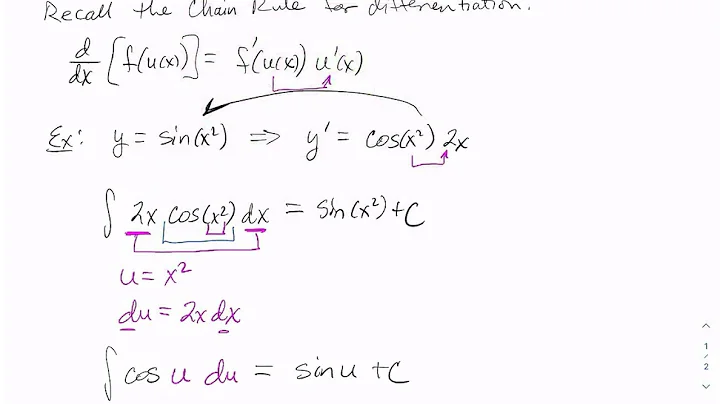 Recall the Chain Rule for differentiation.
d/dx [f(u(x))] = f'(u(x)) u'(x)
Ex: y = sin(x²) ⇒ y' = cos(x²) 2x
∫ 2x cos(x²) dx = sin(x²) + C
u = x²
du = 2x dx
∫ cos u du = sin u + C
1
/
2